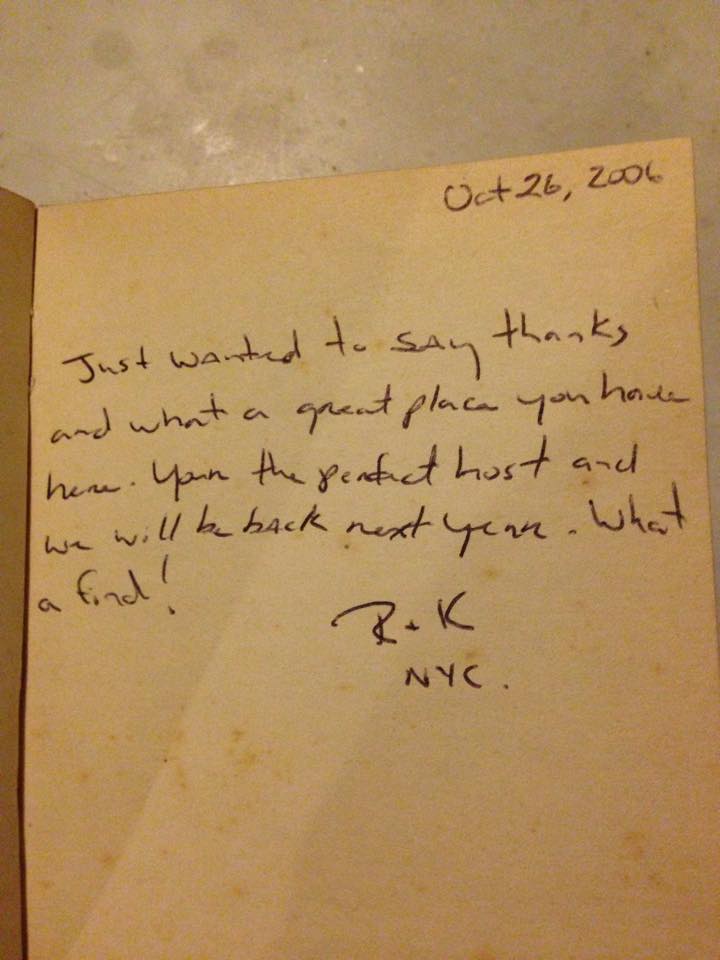 Oct 26, 2006
Just wanted to say thanks
and what a great place you have
here. Your the perfect host and
we will be back next year. What
a find!
R + K
NYC.